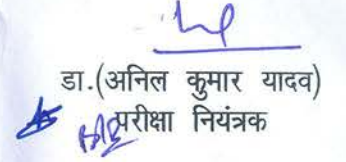 डा.(अनिल कुमार यादव)
परीक्षा नियंत्रक